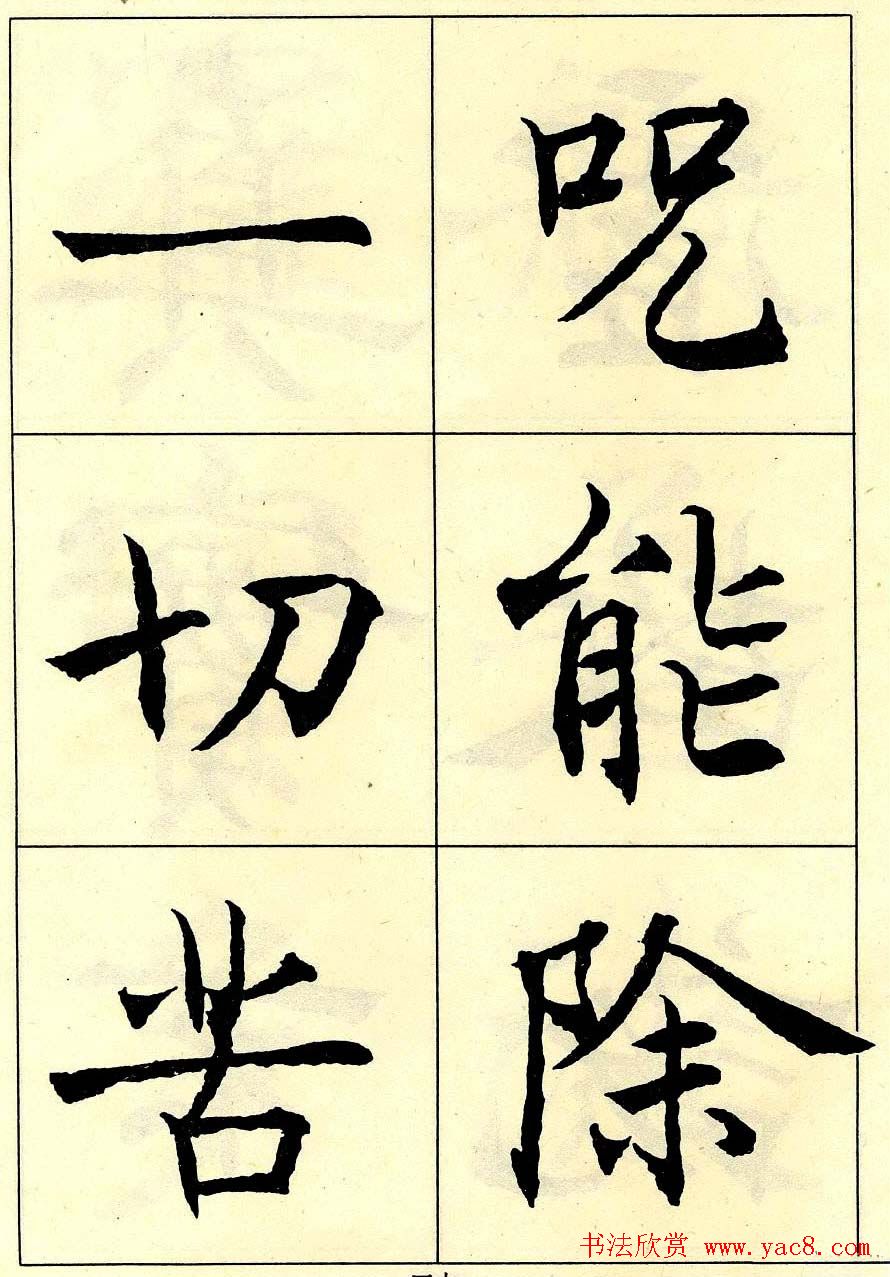 咒能除
一切苦
书法欣赏 www.yac8.com